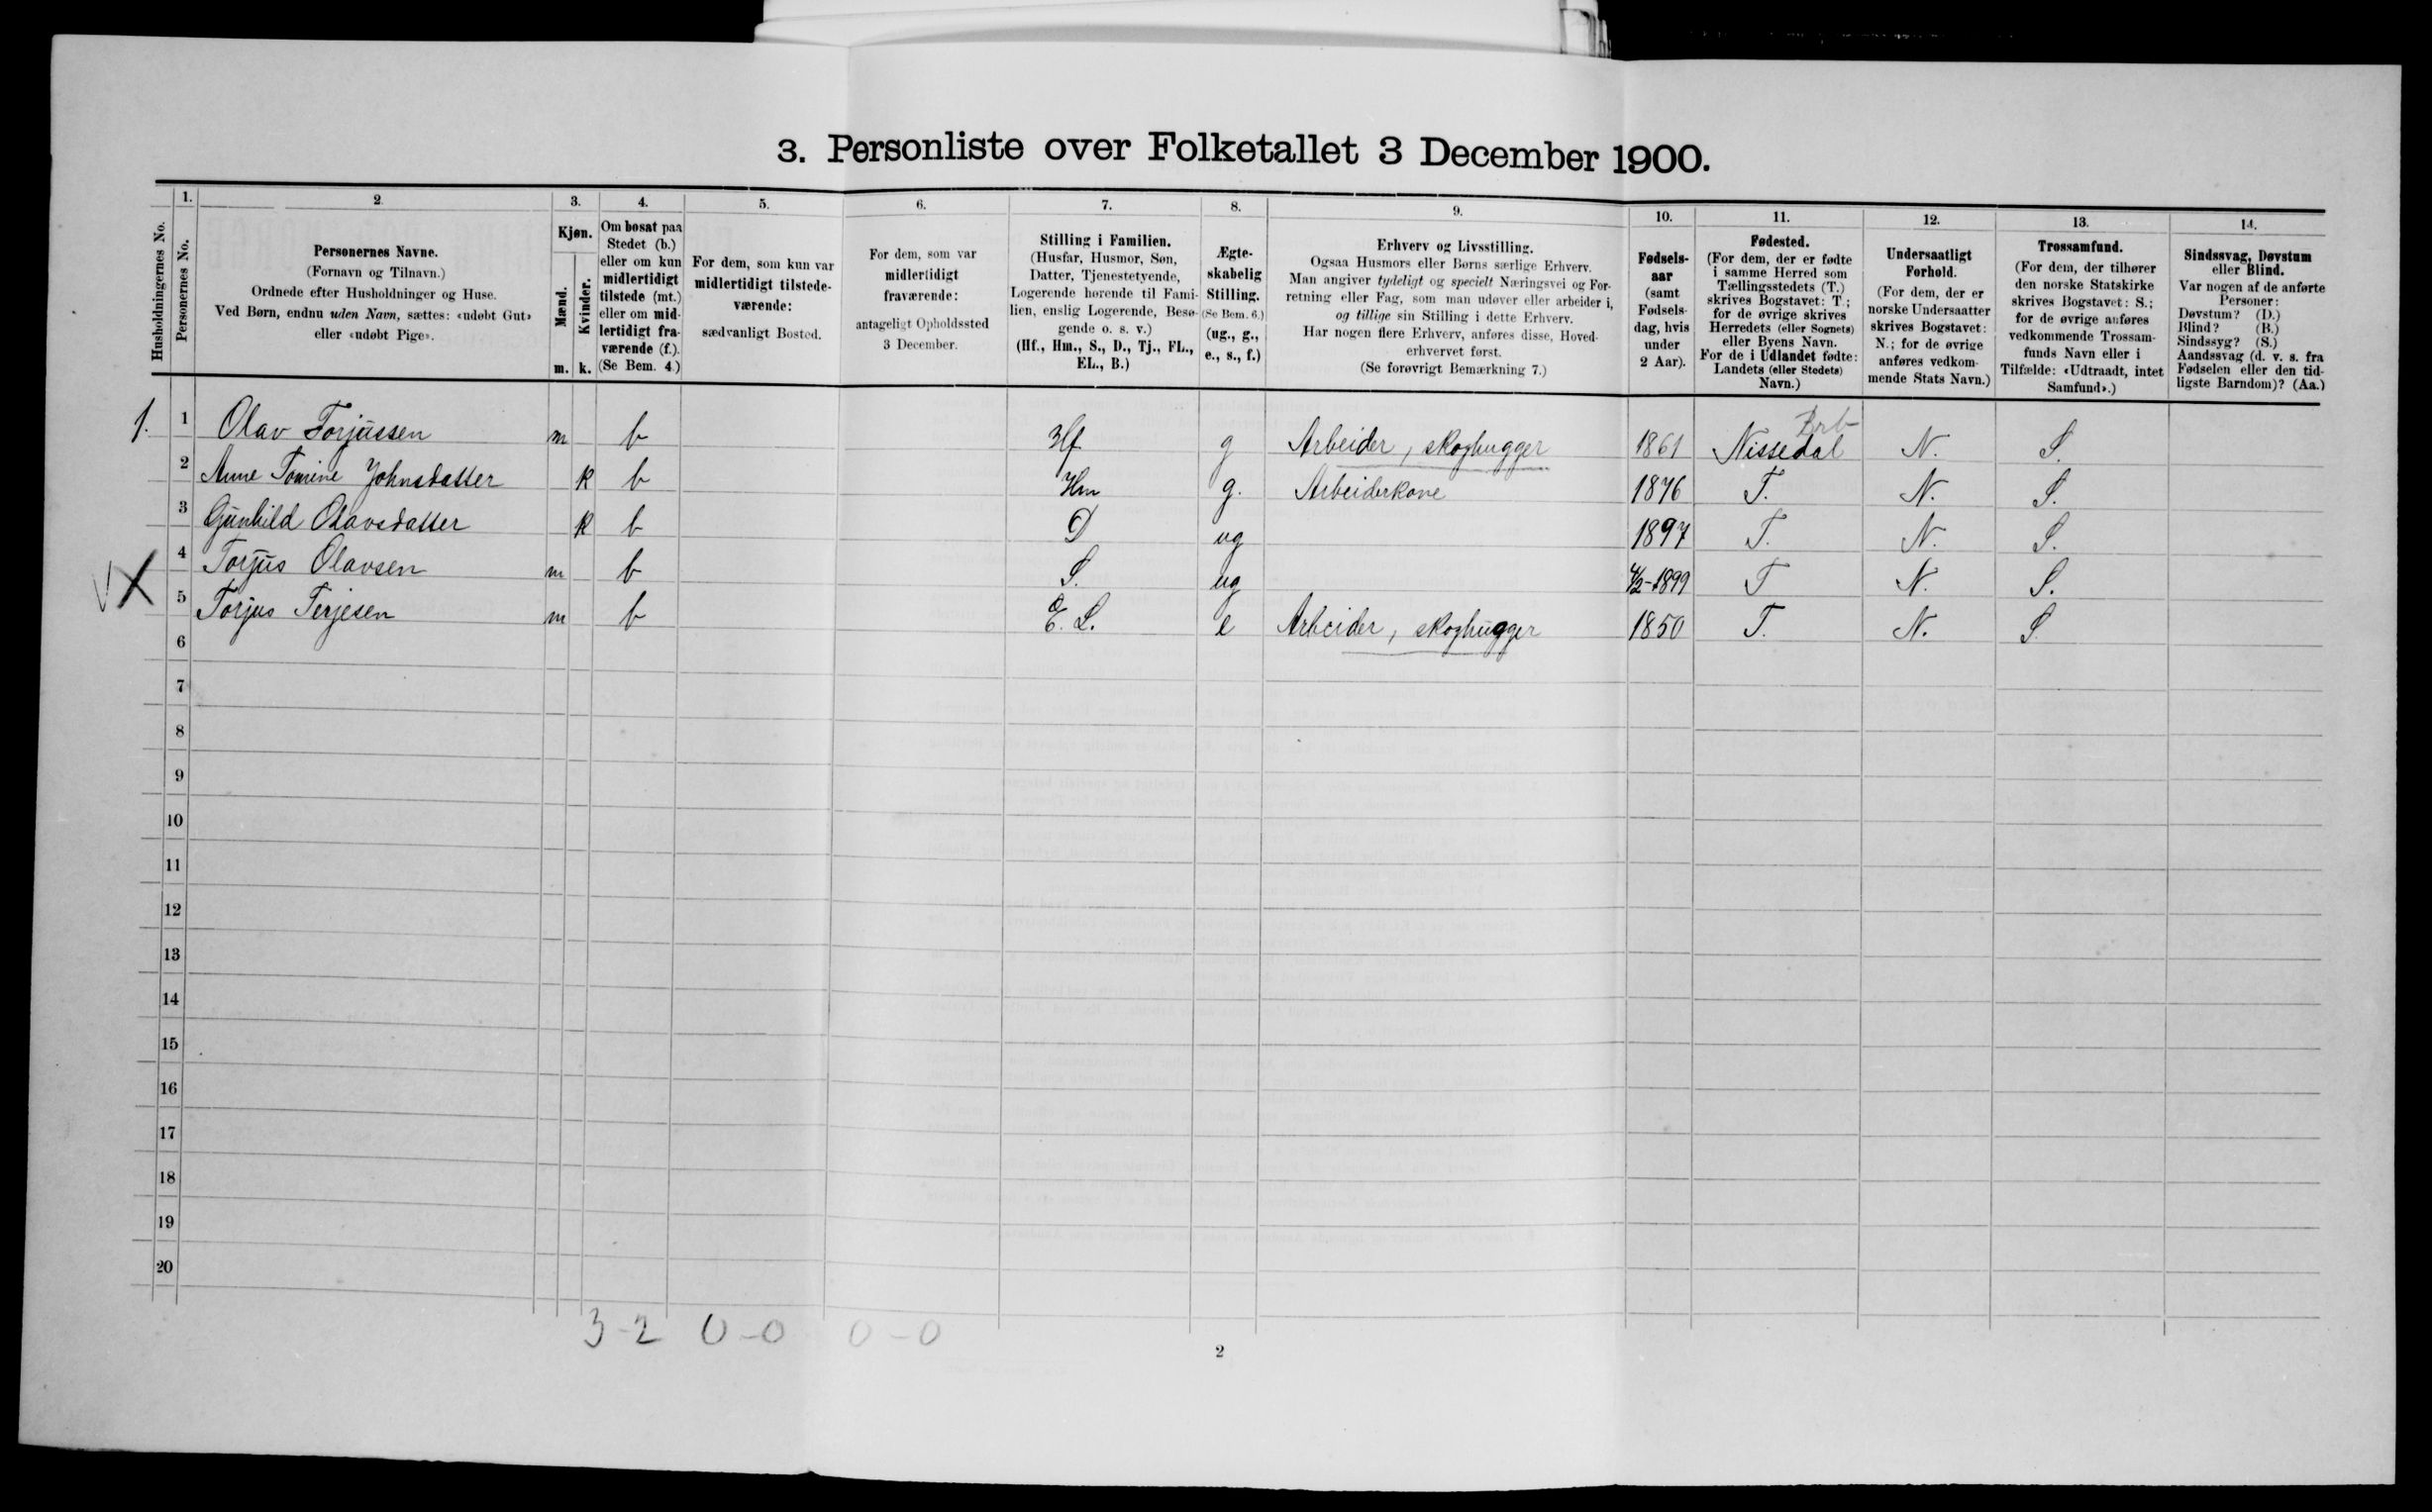 3. Personliste over Folketallet 3 December 1900.
Husholdningernes No.
1.
Personernes No.
2
Personernes Navne.
(Fornavn og Tilnavn.)
Ordnede efter Husholdninger og Huse.
Ved Børn, endnu uden Navn, sættes: «udøbt Gut»
eller «udøbt Pige».
3.
Kjøn.
Mænd.
Kvinder.
m. k.
4.
Om bosat paa
Stedet (b.)
eller om kun
midlertidigt
tilstede (mt.)
eller om mid-
lertidigt fra-
værende (f.).
(Se Bem. 4.)
5.
For dem, som kun var
midlertidigt tilstede-
værende:
sædvanligt Bosted.
6.
For dem, som var
midlertidigt
fraværende:
antageligt Opholdssted
3 December.
7.
Stilling i Familien.
(Husfar, Husmor, Søn,
Datter, Tjenestetyende,
Logerende hørende til Fami-
lien, enslig Logerende, Besø-
gende o. s. v.)
(Hf., Hm., S., D., Tj., FL.,
EL., B.)
8.
Ægte-
skabelig
Stilling.
(Se Bem. 6.)
(ug., g.,
e., s., f.)
9.
Erhverv og Livsstilling.
Ogsaa Husmors eller Børns særlige Erhverv.
Man angiver tydeligt og specielt Næringsvei og For-
retning eller Fag, som man udøver eller arbeider i,
og tillige sin Stilling i dette Erhverv.
Har nogen flere Erhverv, anføres disse, Hoved-
erhvervet først.
(Se forøvrigt Bemærkning 7.)
10.
Fødsels-
aar
(samt
Fødsels-
dag, hvis
under
2 Aar).
11.
Fødested.
(For dem, der er fødte
i samme Herred som
Tællingsstedets (T.)
skrives Bogstavet: T.;
for de øvrige skrives
Herredets (eller Sognets)
eller Byens Navn.
For de i Udlandet fødte:
Landets (eller Stedets)
Navn.)
12.
Undersaatligt
Forhold.
(For dem, der er
norske Undersaatter
skrives Bogstavet:
N.; for de øvrige
anføres vedkom-
mende Stats Navn.)
13.
Trossamfund.
(For dem, der tilhører
den norske Statskirke
skrives Bogstavet: S.;
for de øvrige anføres
vedkommende Trossam-
funds Navn eller i
Tilfælde: «Udtraadt, intet
Samfund».)
14.
Sindssvag, Døvstum
eller Blind.
Var nogen af de anførte
Personer:
Døvstum? (D.)
Blind? (B.)
Sindssyg? (S.)
Aandssvag (d. v. s. fra
Fødselen eller den tid-
ligste Barndom)? (Aa.)
1. 1 Olav Torjussen m b Hf g Arbeider, skoghugger 1861 Nissedal N. S.
2 Anne Tomine Johnsdatter k b Hm g. Arbeiderkone 1876 T. N. S.
3 Gunhild Olavsdatter k b D ug 1897 T. N. S.
4 Torjus Olavsen m b S. ug 4/2-1899 T N. S.
5 Torjus Terjesen m b E. L. e Arbeider, skoghugger 1850 T. N. S.
6
7
8
9
10
11
12
13
14
15
16
17
18
19
20
3-2 0-0 0-0
2